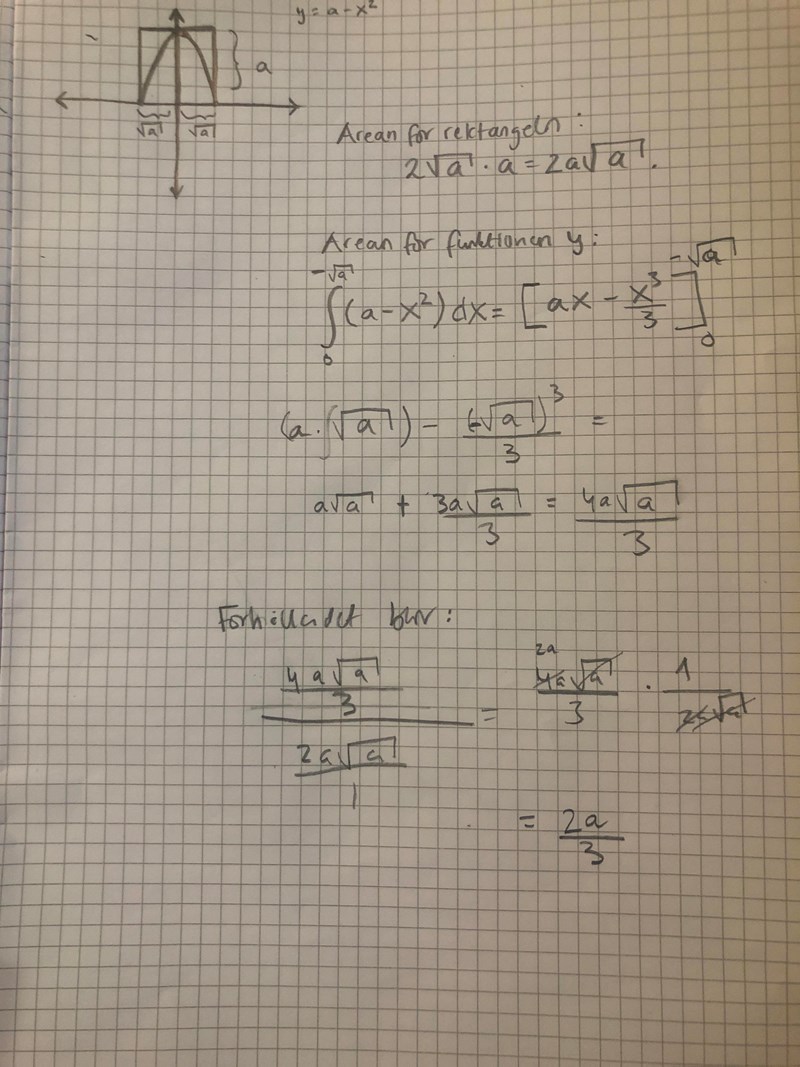 y = a - x²
a
√a √a
Arean för rektangeln:
2√a · a = 2a√a.
Arean för funktionen y:
∫₀^(-√a) (a - x²) dx = [ax - x³/3]₀^(-√a)
(a · (√a) - (-√a)³/3 =
a√a + 3a√a/3 = 4a√a/3
Förhållandet blir:
(4a√a/3)/(2a√a/1) = 2a 4a√a/3 · 1/2a√a
= 2a/3